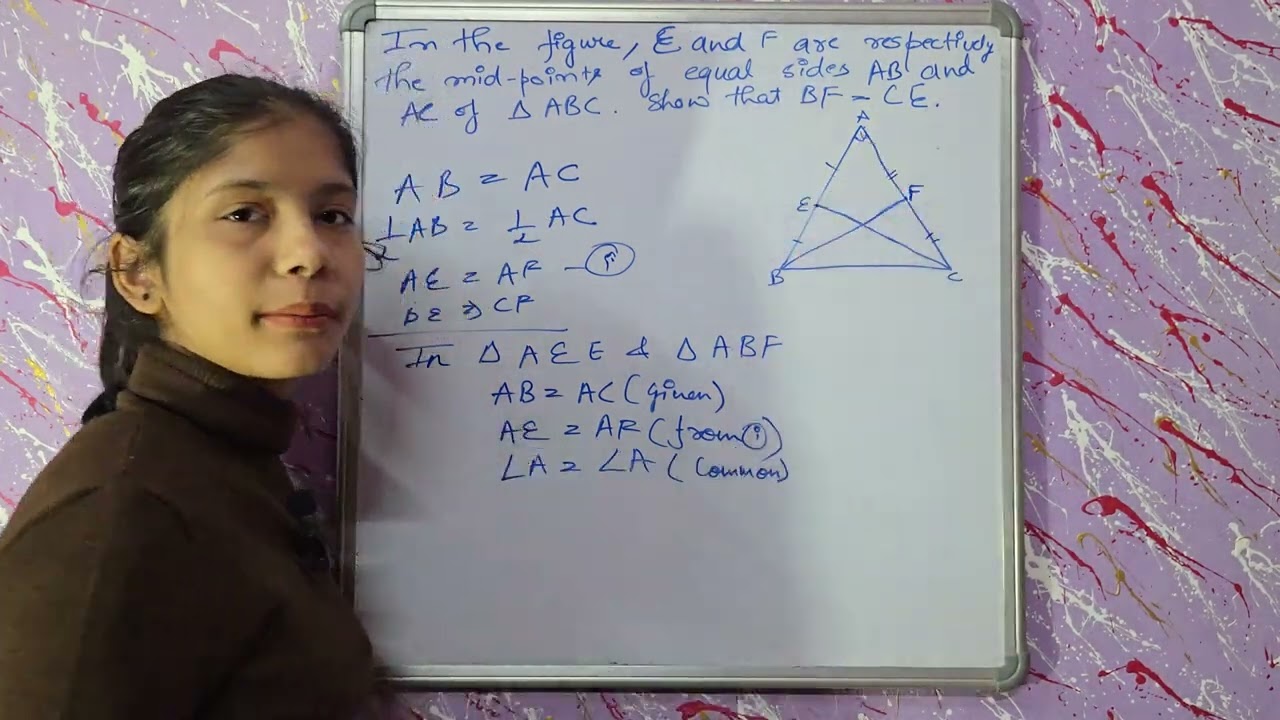 In the figure, E and F are respectively
the mid-points of equal sides AB and
AC of Δ ABC. Show that BF = CE.
A
E
F
B
C
AB = AC
1/2 AB = 1/2 AC
AE = AF - (i)
BE => CF
In Δ AEE & Δ ABF
AB = AC (given)
AE = AF (from (i))
∠A = ∠A (Common)